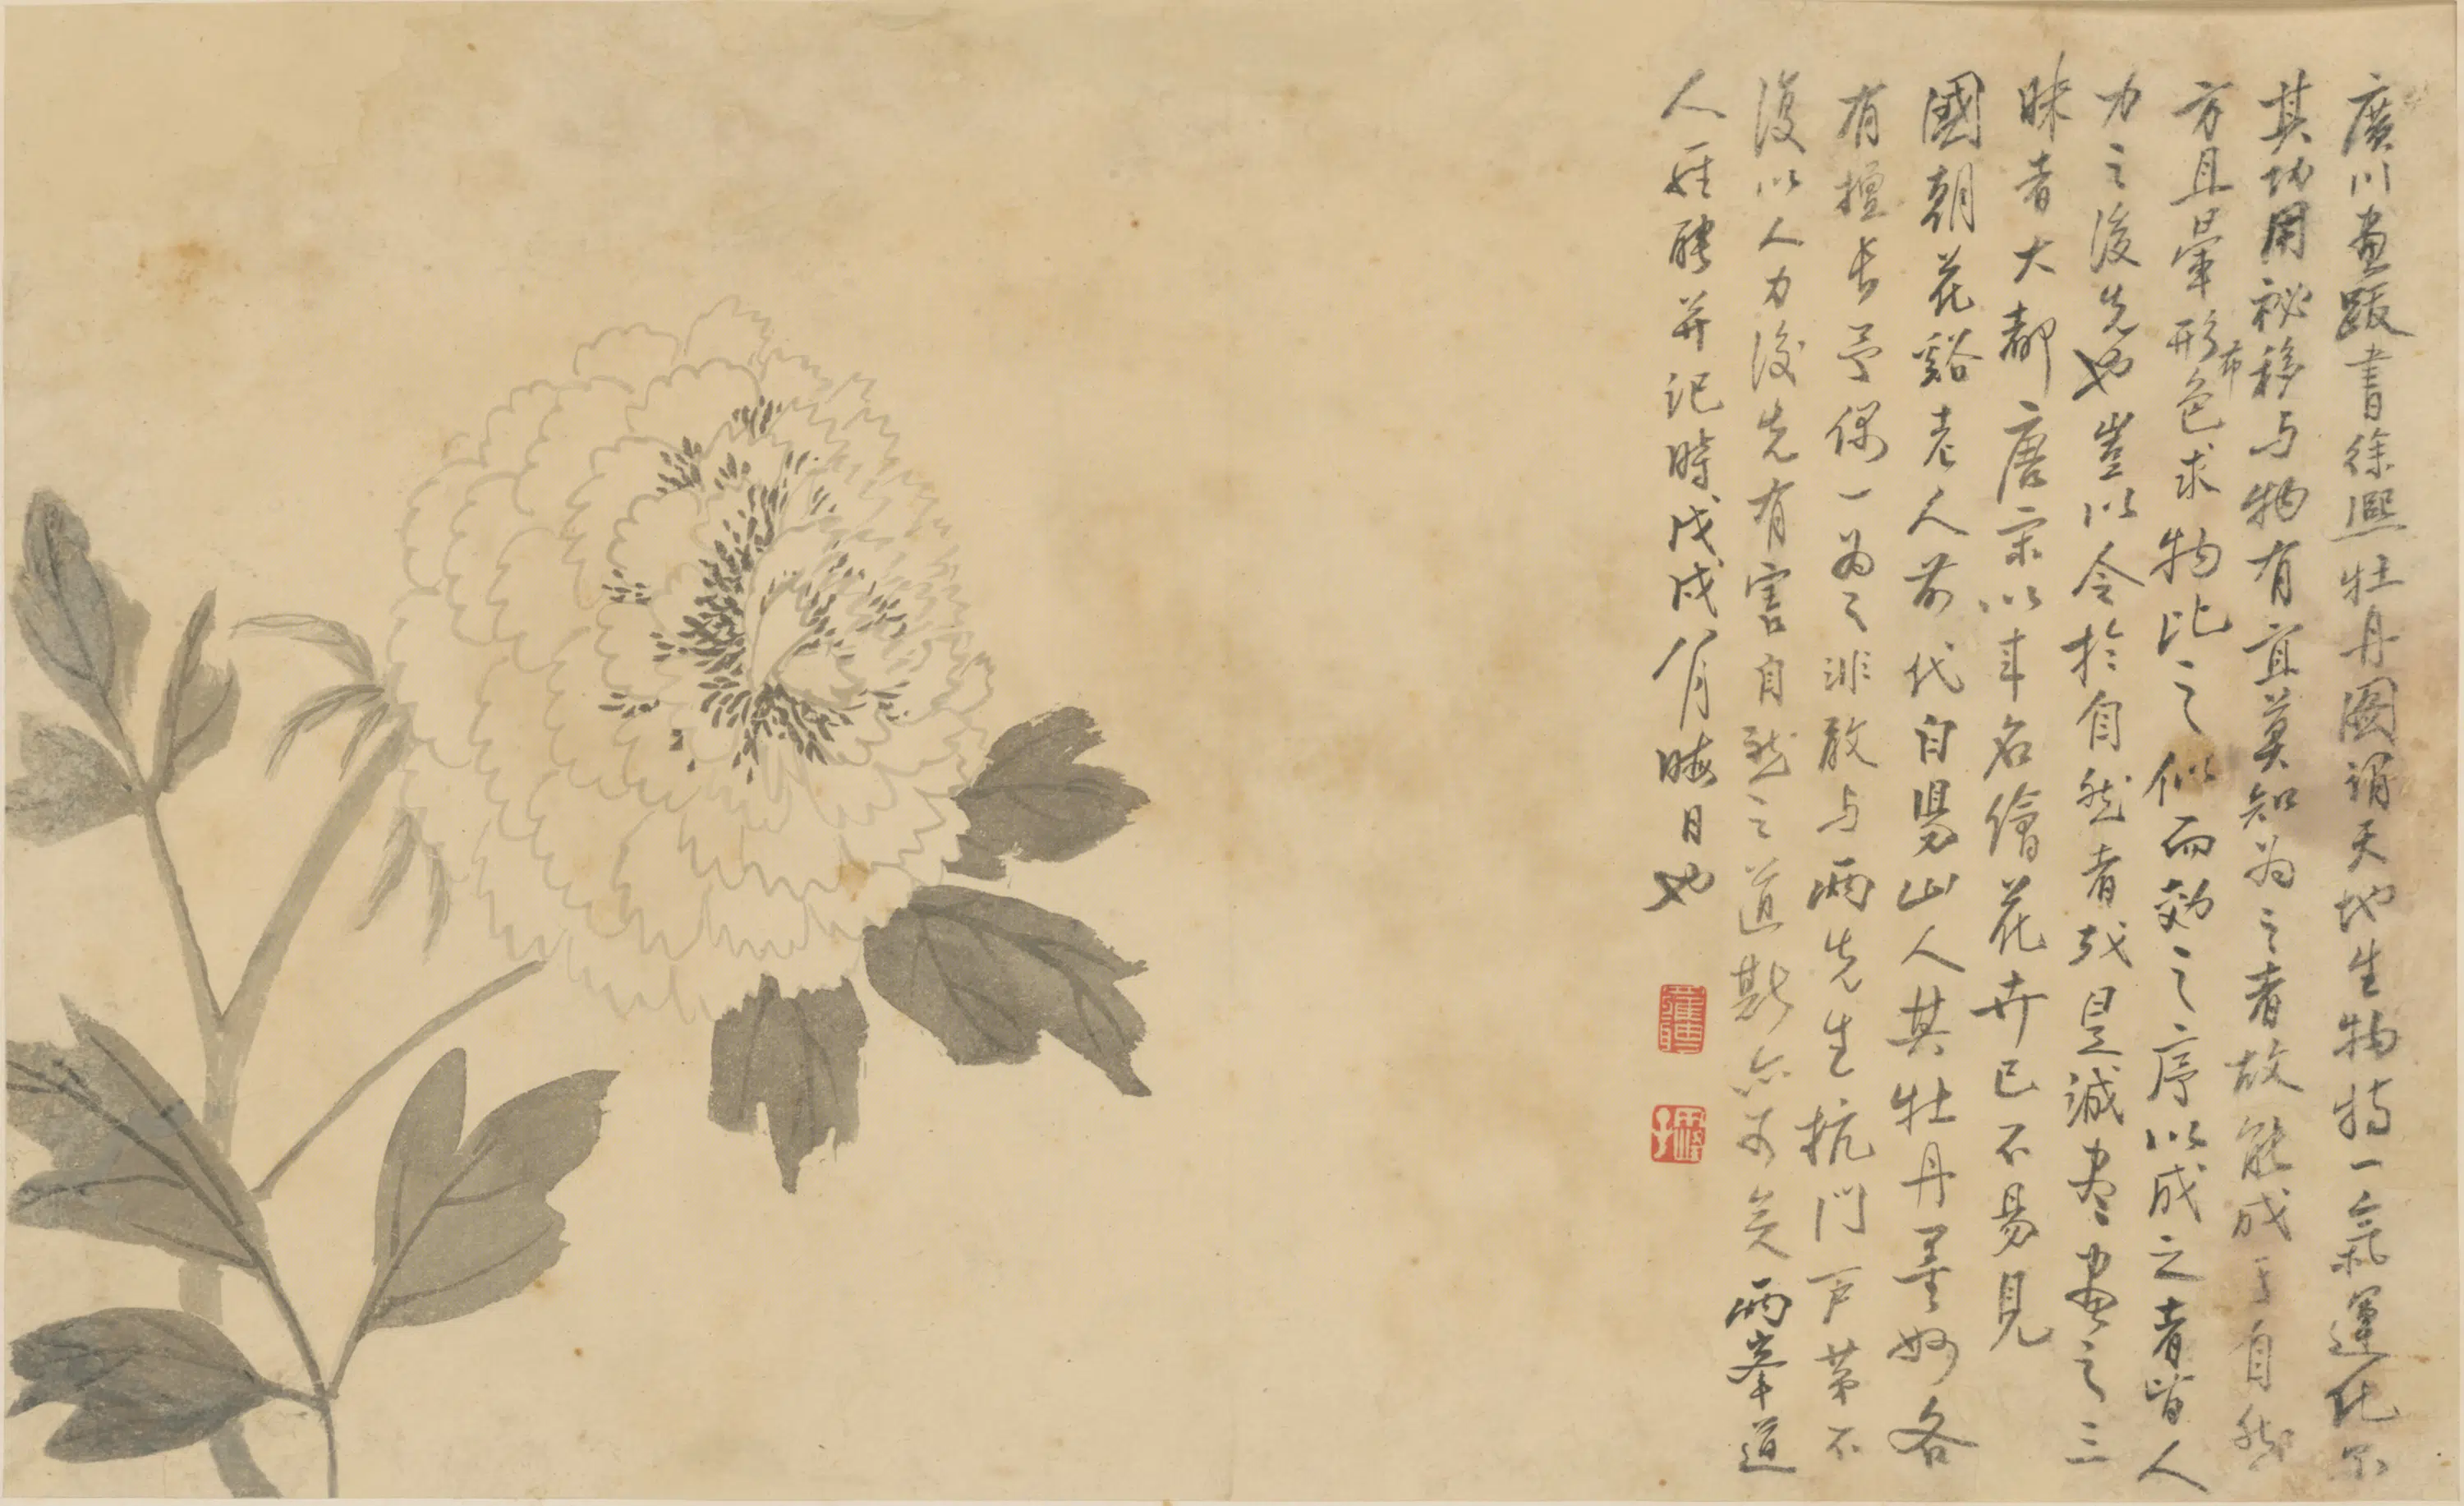 廣川畫跋書徐熙牡丹圖謂天地生物特一氣運化尔
其功用祕移与物有宜莫知为之者故能成于自然
方且暈形布色求物比之似而効之序以成之者皆人
力之後先也豈以合於自然者哉是誠盡畫之三
昧者大都唐宋以來名繪花卉已不易見
國朝花谿老人前代白昜山人其牡丹墨妙各
有擅長予偶一为之非敢与兩先生抗門戶第不
復以人力後先有害自然之道斯亦可矣兩峯道
人在聘并記時戊戌八月晦日也